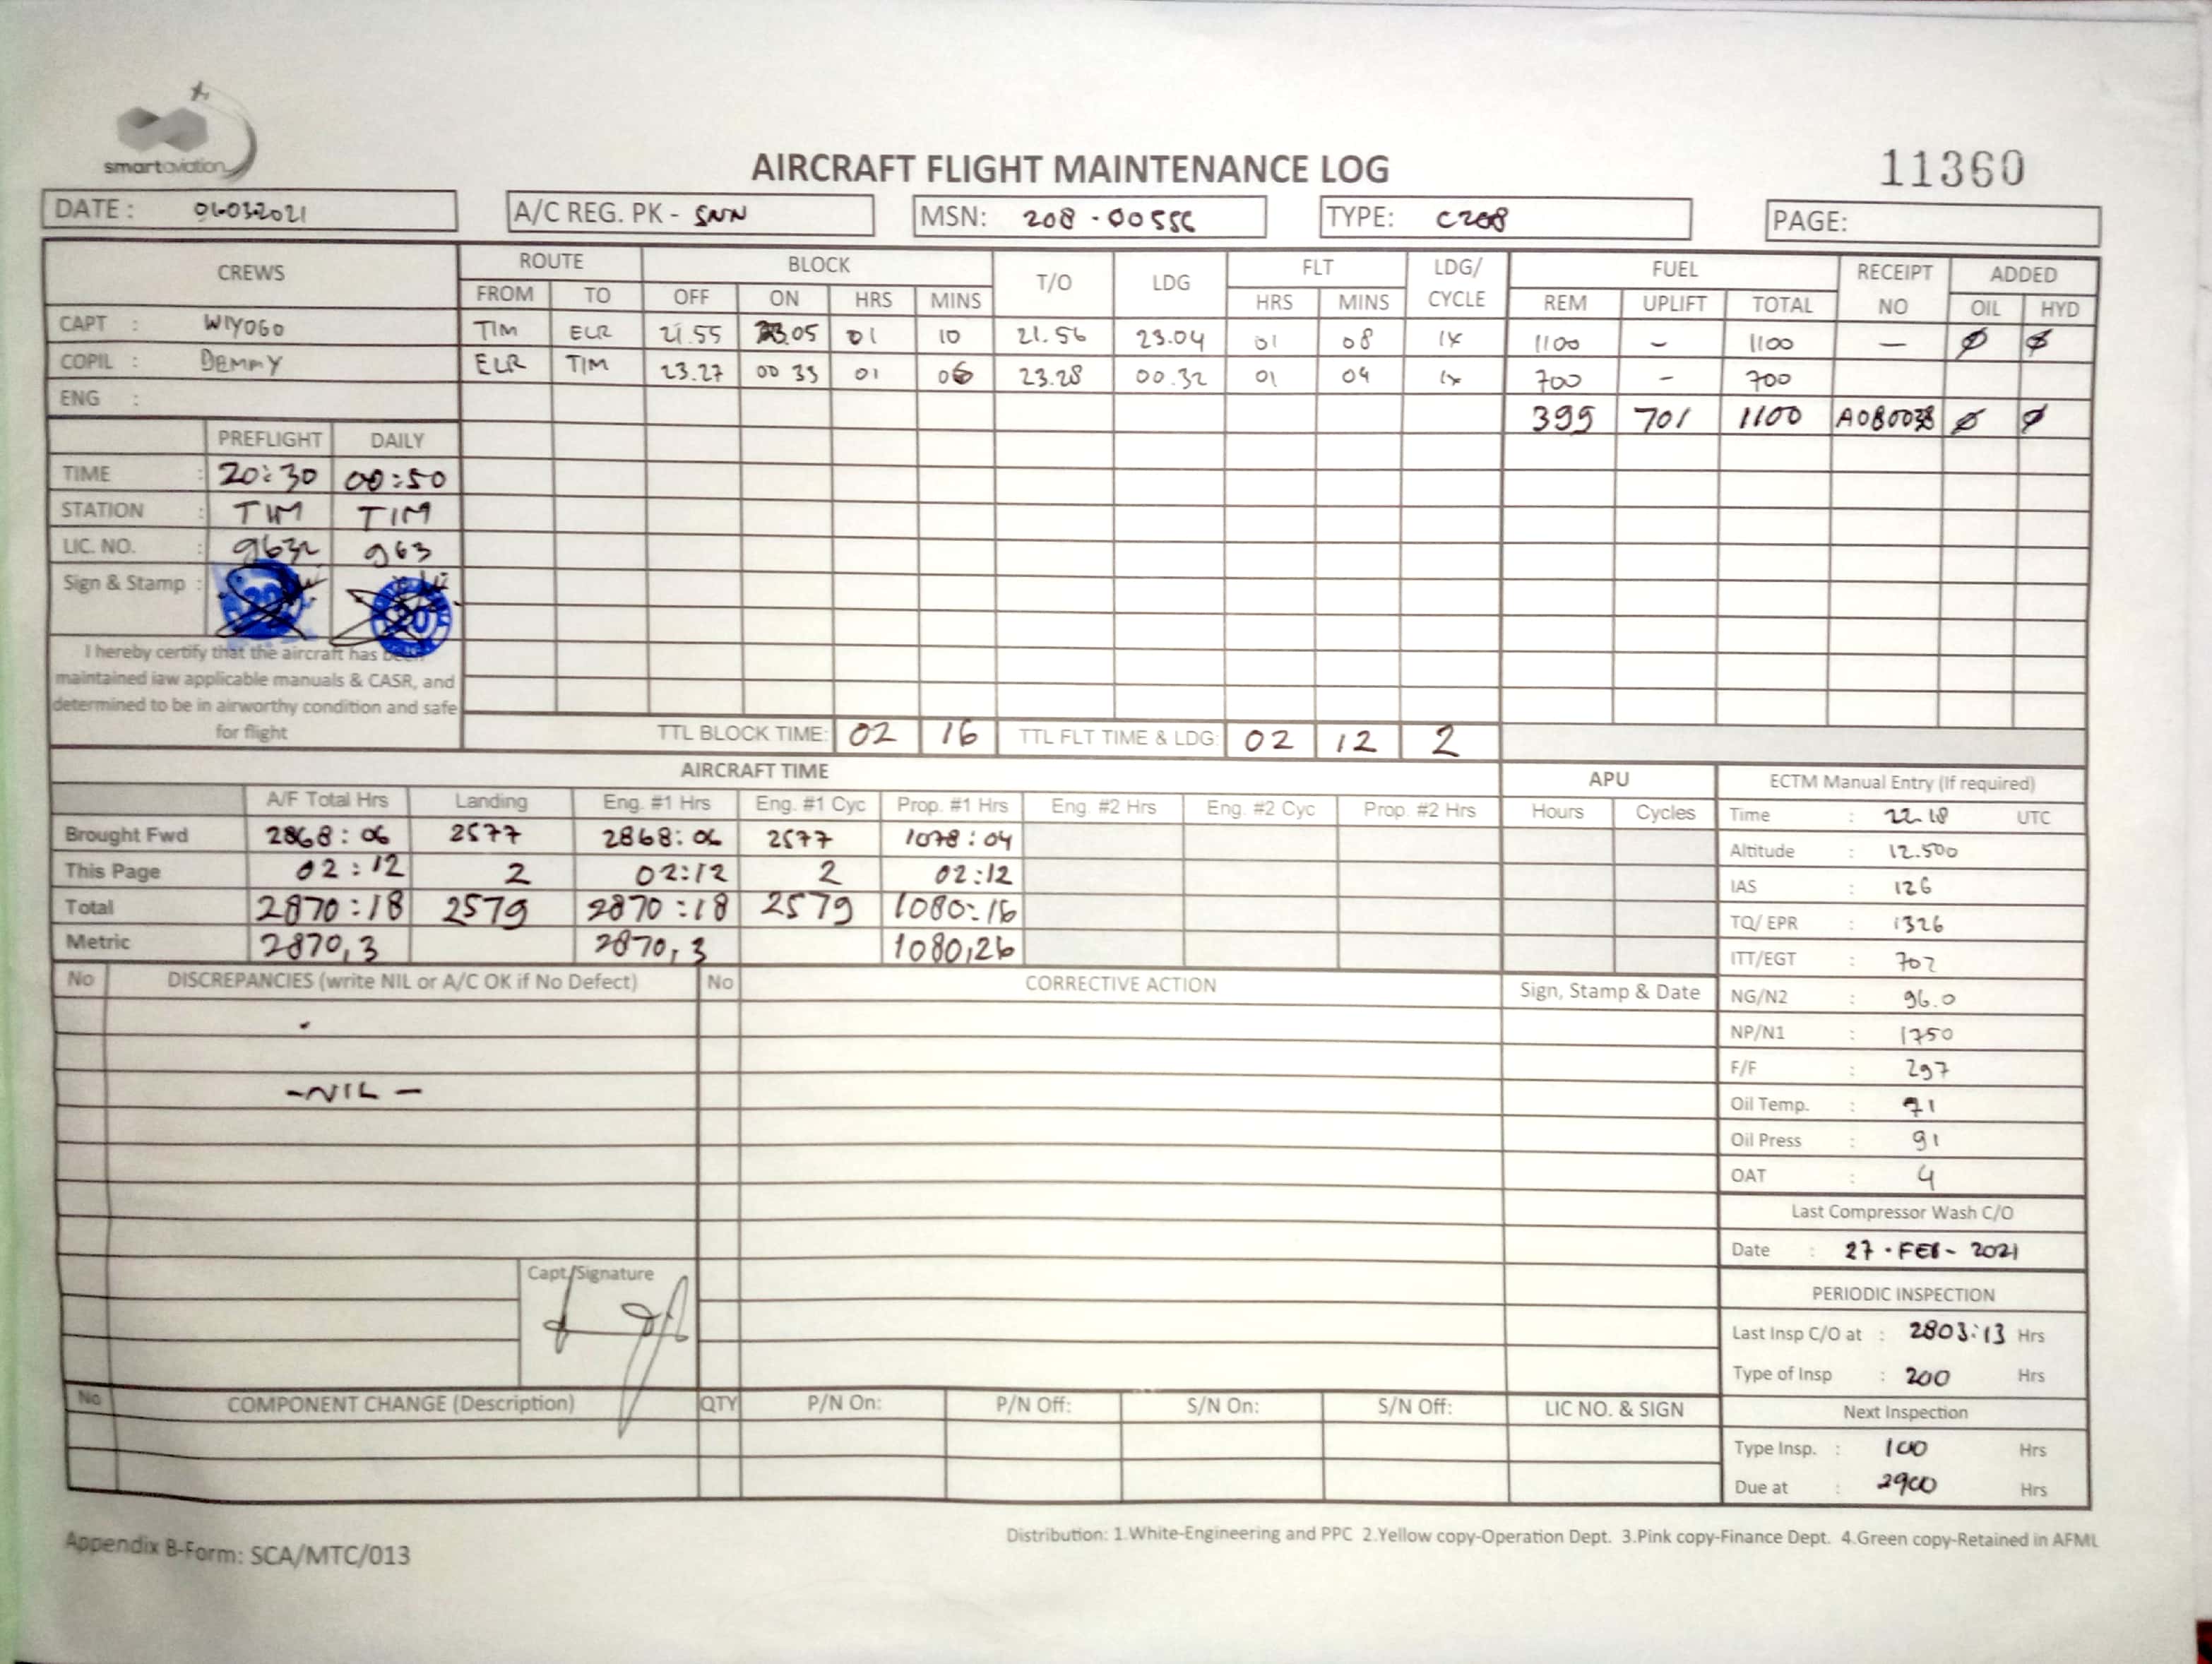 smartaviation
AIRCRAFT FLIGHT MAINTENANCE LOG
11360
DATE : 01-03-2021 A/C REG. PK - SNN MSN: 208-00556 TYPE: C208 PAGE:
CREWS ROUTE BLOCK T/O LDG FLT LDG/ CYCLE FUEL RECEIPT NO ADDED
FROM TO OFF ON HRS MINS HRS MINS REM UPLIFT TOTAL OIL HYD
CAPT : WIYOGO TIM ELR 21.55 23.05 01 10 21.56 23.04 01 08 1x 1100 - 1100 - Ø Ø
COPIL : DEMMY ELR TIM 23.27 00 33 01 06 23.28 00.32 01 04 1x 700 - 700
ENG : 399 701 1100 Ø Ø
PREFLIGHT DAILY
TIME : 20:30 00:50
STATION : TIM TIM
LIC. NO. : 9632 963
Sign & Stamp :
I hereby certify that the aircraft has been
maintained iaw applicable manuals & CASR, and
determined to be in airworthy condition and safe
for flight
TTL BLOCK TIME: 02 16 TTL FLT TIME & LDG: 02 12 2
AIRCRAFT TIME APU ECTM Manual Entry (If required)
A/F Total Hrs Landing Eng. #1 Hrs Eng. #1 Cyc Prop. #1 Hrs Eng. #2 Hrs Eng. #2 Cyc Prop. #2 Hrs Hours Cycles
Brought Fwd 2868:06 2577 2868:06 2577 1078:04
This Page 02:12 2 02:12 2 02:12
Total 2870:18 2579 2870:18 2579 1080:16
Metric 2870,3 2870,3 1080,26
Time : 22.18 UTC
Altitude : 12.500
IAS : 126
TQ/ EPR : 1326
ITT/EGT : 702
NG/N2 : 96.0
NP/N1 : 1750
F/F : 297
Oil Temp. : 71
Oil Press : 91
OAT : 4
Last Compressor Wash C/O
Date : 27-FEB-2021
PERIODIC INSPECTION
Last Insp C/O at : 2803:13 Hrs
Type of Insp : 200 Hrs
Next Inspection
Type Insp. : 100 Hrs
Due at : 2900 Hrs
No DISCREPANCIES (write NIL or A/C OK if No Defect) No CORRECTIVE ACTION Sign, Stamp & Date
-NIL-
Capt/Signature
No COMPONENT CHANGE (Description) QTY P/N On: P/N Off: S/N On: S/N Off: LIC NO. & SIGN
Distribution: 1.White-Engineering and PPC 2.Yellow copy-Operation Dept. 3.Pink copy-Finance Dept. 4.Green copy-Retained in AFML
Appendix B-Form: SCA/MTC/013